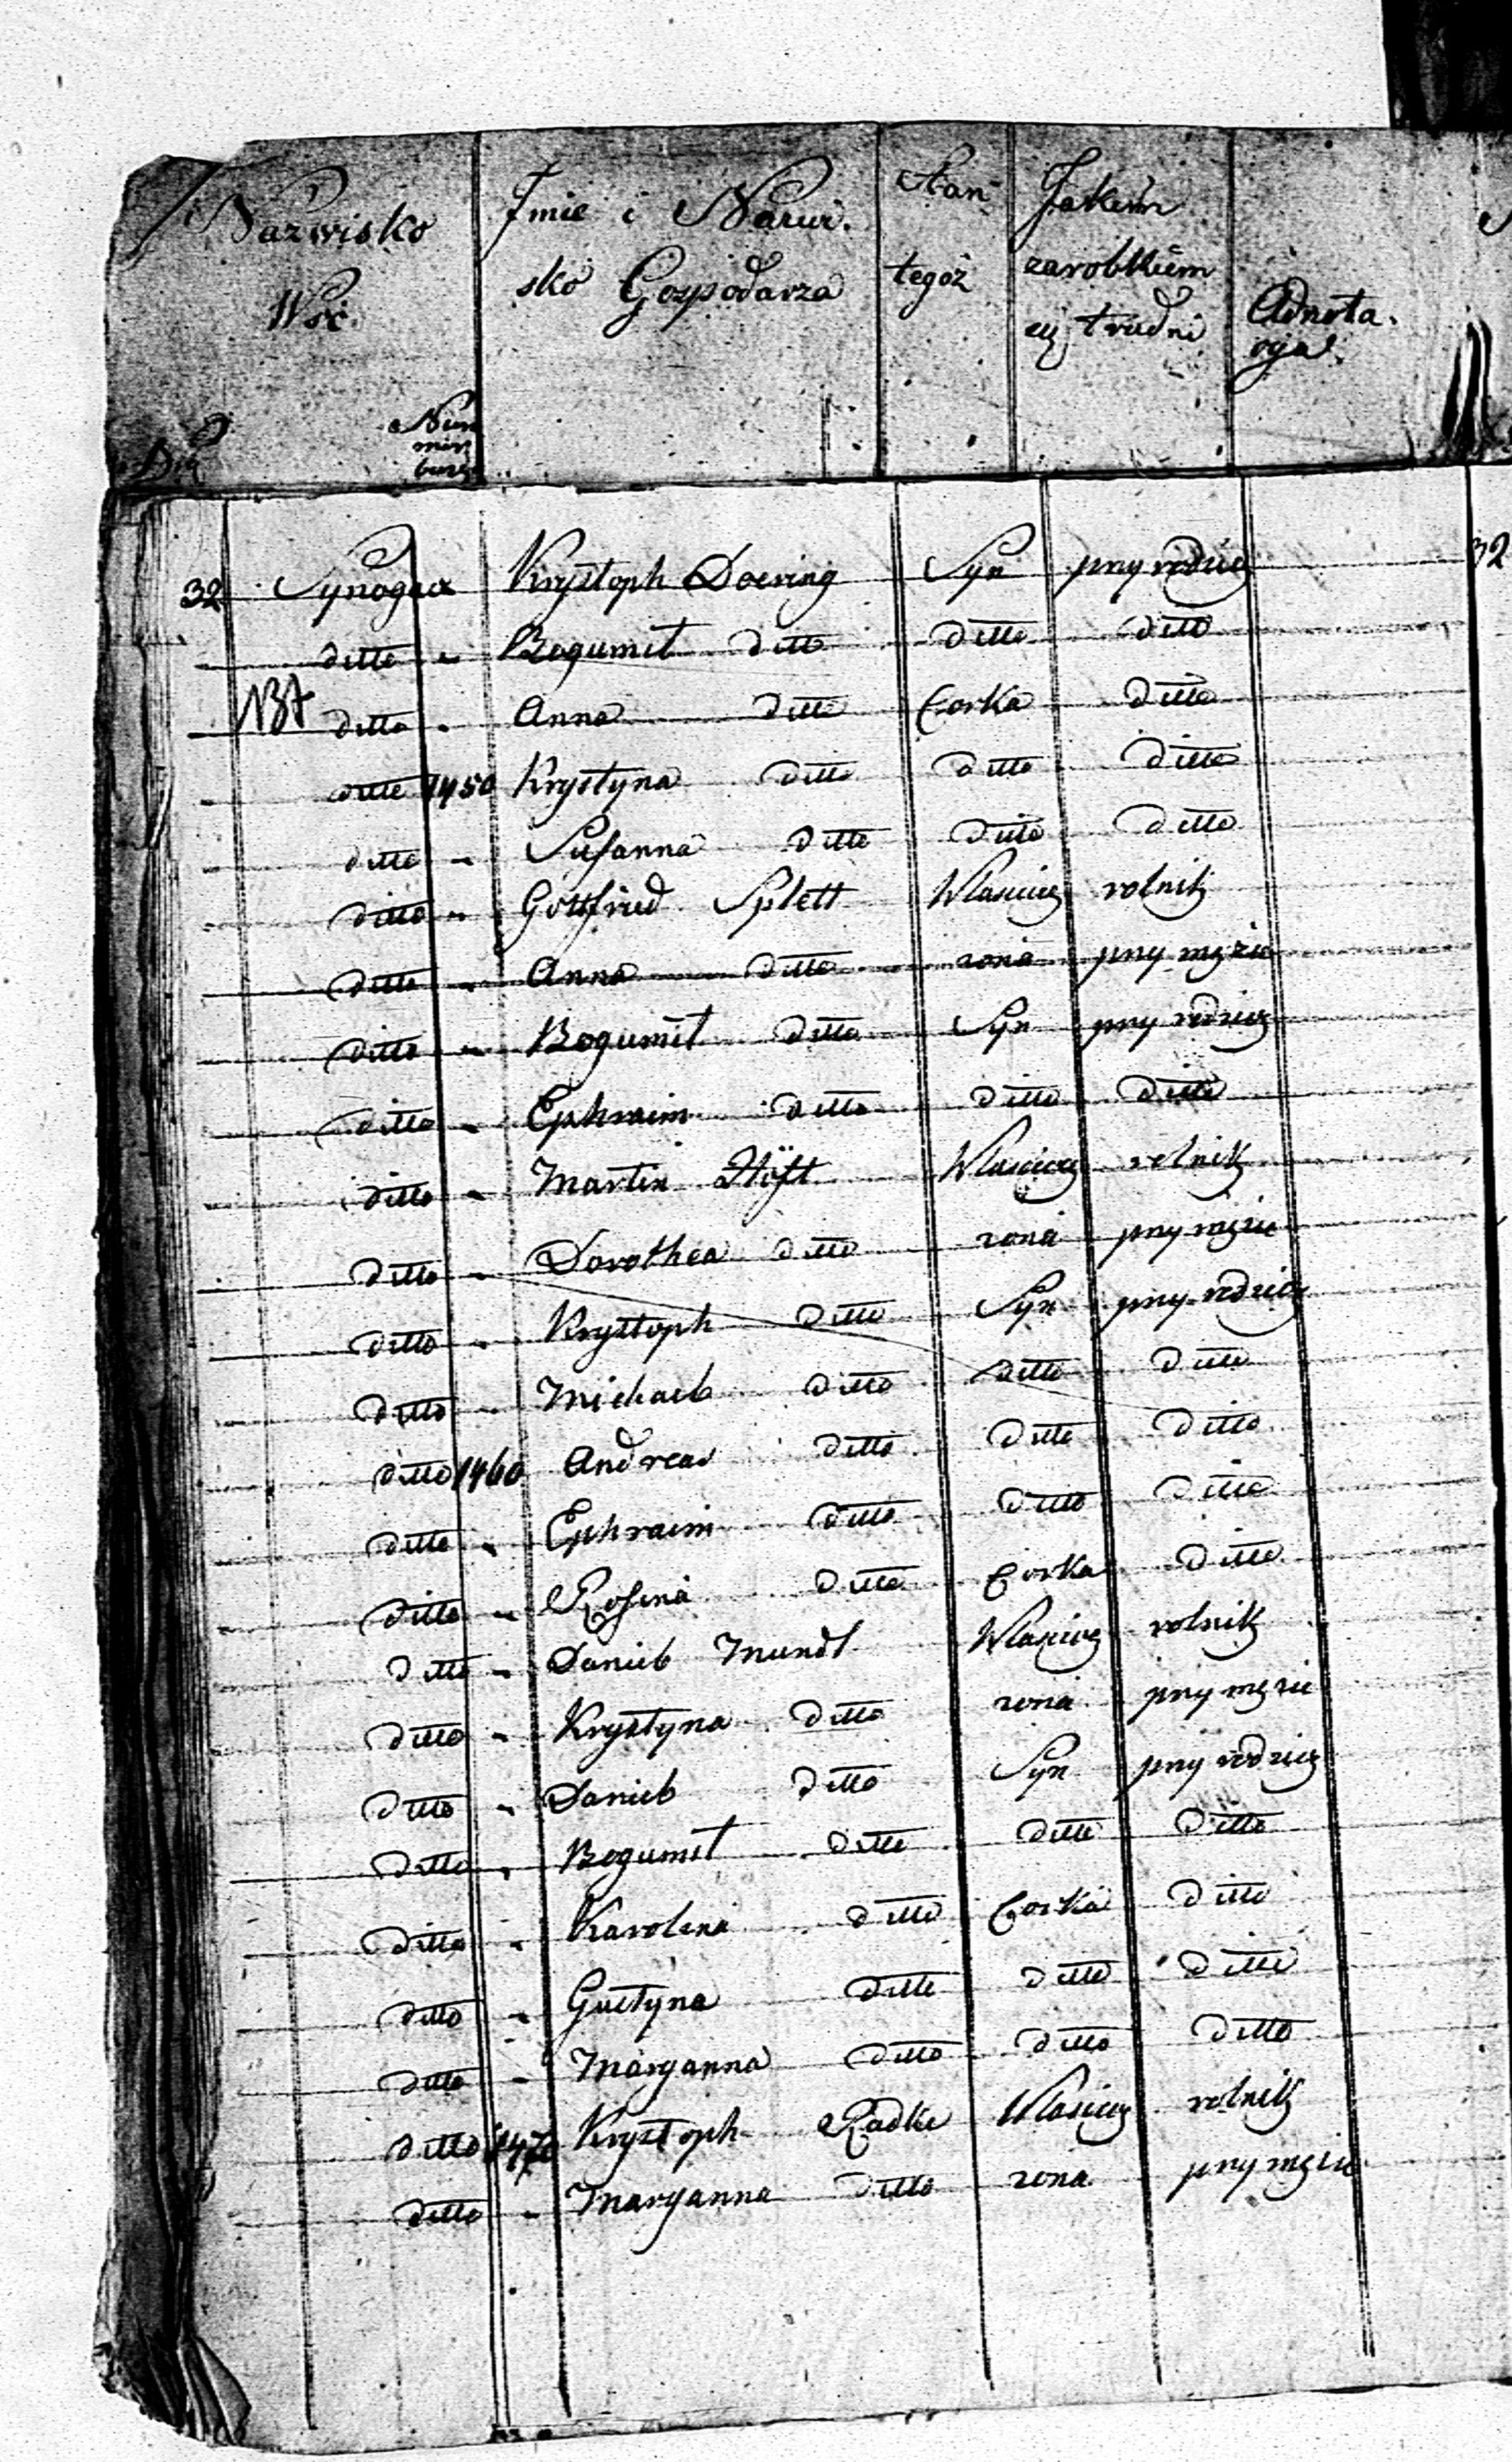 Nazwisko
Wsi
Imie i Nazwi.
sko Gospodarza
Stan
tegoż
Jakim
zarobkiem
się trudni
Adnota.
cya
Num
mer
32 Synogac Krystoph Doering Syn przy rodzic 32
ditto " Bogumił ditto ditto ditto
ditto " Anna ditto Corka ditto
ditto 1450 Krystyna ditto ditto ditto
ditto " Susanna ditto ditto ditto
ditto " Gottfried Splett Wlasciciel rolnik
ditto " Anna ditto zona przy mężu
ditto " Bogumił ditto Syn przy rodzic
ditto " Ephraim ditto ditto ditto
ditto " Martin Höft Wlasciciel rolnik
ditto " Dorothea ditto zona przy mężu
ditto " Krystoph ditto Syn przy rodzic
ditto " Michael ditto ditto ditto
ditto 1460 Andreas ditto ditto ditto
ditto " Ephraim ditto ditto ditto
ditto " Rosina ditto Corka ditto
ditto " Daniel Mundt Wlasciciel rolnik
ditto " Krystyna ditto zona przy mężu
ditto " Daniel ditto Syn przy rodzic
ditto " Bogumił ditto ditto ditto
ditto " Karolina ditto Corka ditto
ditto " Gustyna ditto ditto ditto
ditto " Maryanna ditto ditto ditto
ditto 1470 Krystoph Radke Wlasciciel rolnik
ditto " Maryanna ditto zona przy mężu